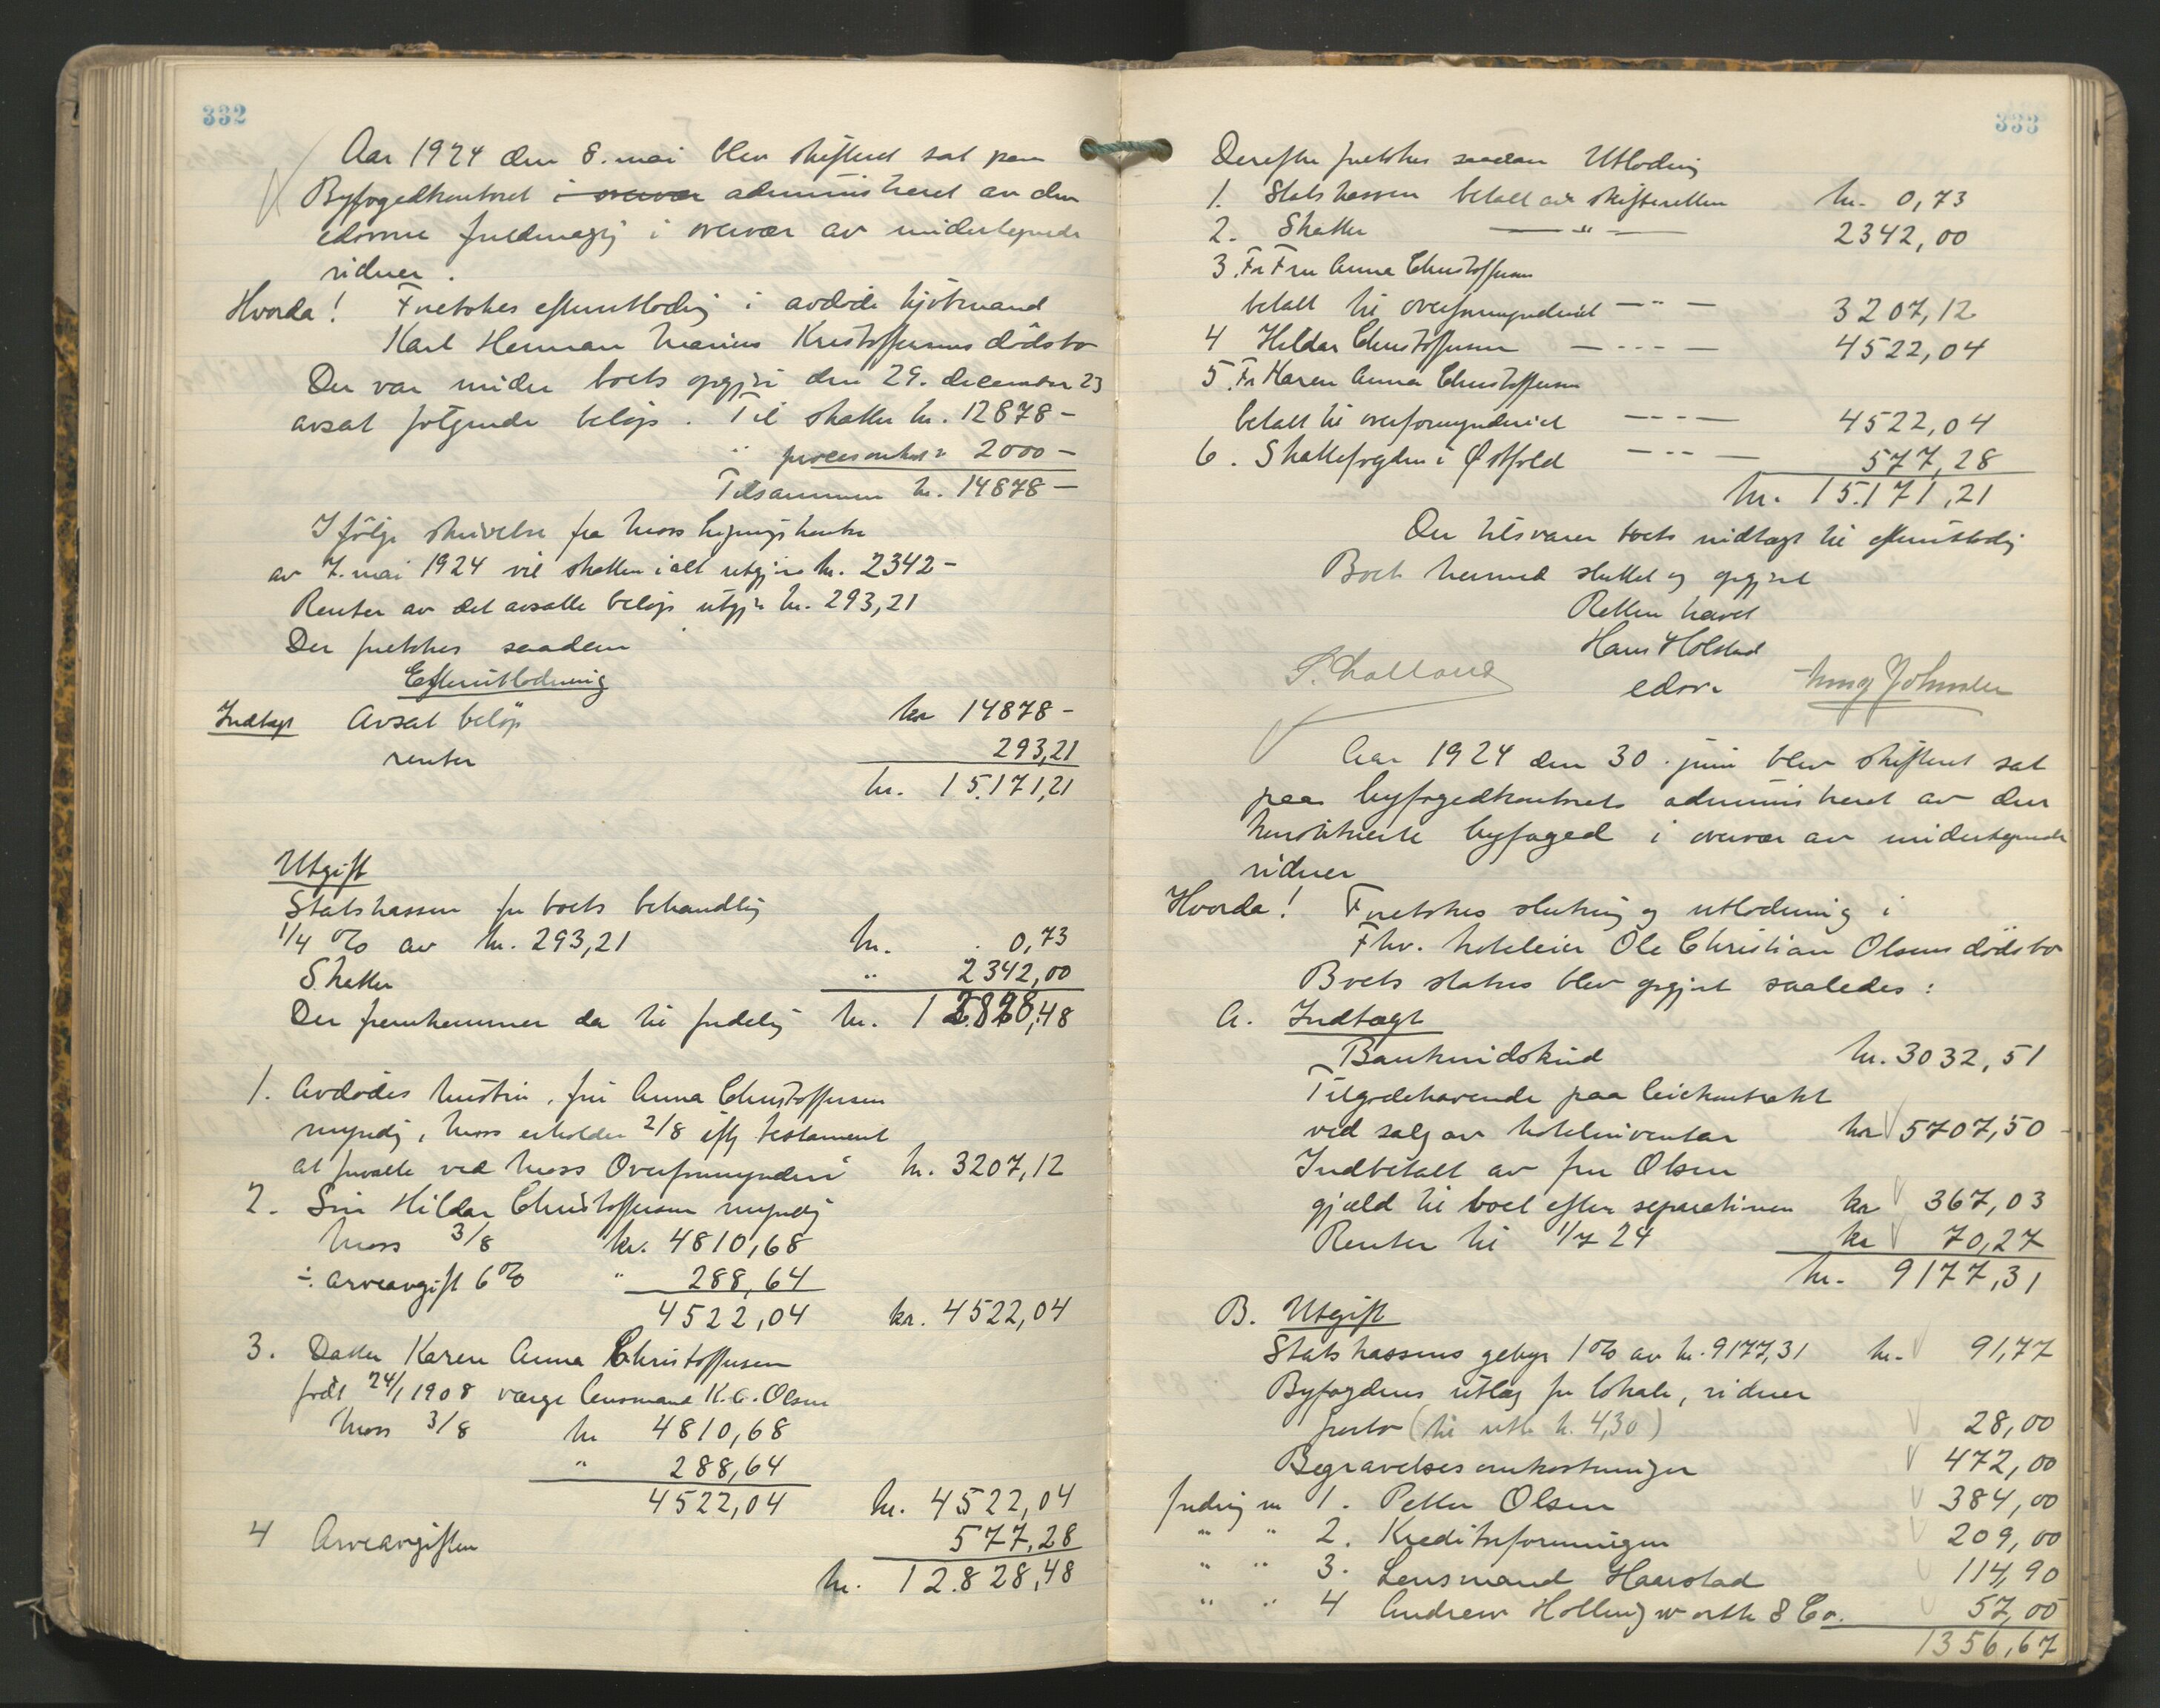 332
Aar 1924 den 8. mai blev skifteret sat paa
Byfogedkontoret i overvær administreret av den
edsvorne fuldmægtig i overvær av undertegnede
vidner.
Hvorda! Foretokes efterutlodning i avdøde kjøbmand
Karl Herman Marius Kristoffersens dødsbo
Der var under boets opgjør den 29. december 23
avsat følgende beløp. Til skatter kr. 12878 -
" procesomkost. " 2000 -
Tilsammen kr. 14878 -
Ifølge skrivelse fra Moss ligningskontor
av 7. mai 1924 vil skatten i alt utgjøre kr. 2342 -
Renter av det avsatte beløp utgjør kr. 293,21
Der foretokes saadan
Efterutlodning
Indtægt Avsat beløp kr 14878 -
renter 293,21
kr. 15.171,21
Utgift
Statskassen for boets behandling
1/4 % av kr. 293,21 kr. 0,73
Skatter " 2342,00
Der fremkommer da til fordeling kr. 12.828,48
1. Avdødes hustru, fru Anna Christoffersen
myndig, Moss erholder 2/8 iflg testament
at forvalte ved Moss Overformynderi kr. 3207,12
2. Søn Hildar Christoffersen myndig
Moss 3/8 kr. 4810,68
÷ arveavgift 6% " 288,64
4522,04 kr. 4522,04
3. Datter Karen Anna Christoffersen
født 24/1 1908 værge lensmand K. C. Olsen
Moss 3/8 kr 4810,68
" 288,64
4522,04 kr. 4522,04
4 Arveavgiften 577,28
kr. 12.828,48
333
Derefter foretokes saadan Utlodning
1. Statskassen betalt av skifteretten kr. 0,73
2. Skatter — " — 2342,00
3. For Fru Anna Christoffersen
betalt til overformynderiet — " — 3207,12
4 Hildar Christoffersen — " — 4522,04
5. For Karen Anna Christoffersen
betalt til overformynderiet — " — 4522,04
6. Skattefogden i Østfold — " — 577,28
kr. 15.171,21
Der tilsvarer boets indtægt til efterutlodning
Boet hermed sluttet og opgjort
Retten hævet
Hans Holstad
edsv.
Aar 1924 den 30. juni blev skifteret sat
paa byfogedkontoret administreret av den
konstituerte byfoged i overvær av undertegnede
vidner
Hvorda! Foretokes slutning og utlodning i
Fhv. hoteleier Ole Christian Olsens dødsbo
Boets status blev opgjort saaledes:
A. Indtægt
Bankindskud kr. 3032,51
Tilgodehavende paa leiekontrakt
ved salg av hotelinventar kr 5707,50
Indbetalt av fru Olsen
gjæld til boet efter separationen kr 367,03
Renter til 1/7 24 kr 70,27
kr. 9177,31
B. Utgift
Statskassens gebyr 1% av kr. 9177,31 kr. 91,77
Byfogdens utlæg for lokale, vidner
porto (til utb. kr. 4,30) 28,00
Begravelsesomkostninger 472,00
fordring nr 1. Petter Olsen 384,00
" " 2. Kreditorforeningen 209,00
" " 3. Lensmand Haarstad 114,90
" " 4 Andrew Hollingworth & Co. 57,00
1356,67